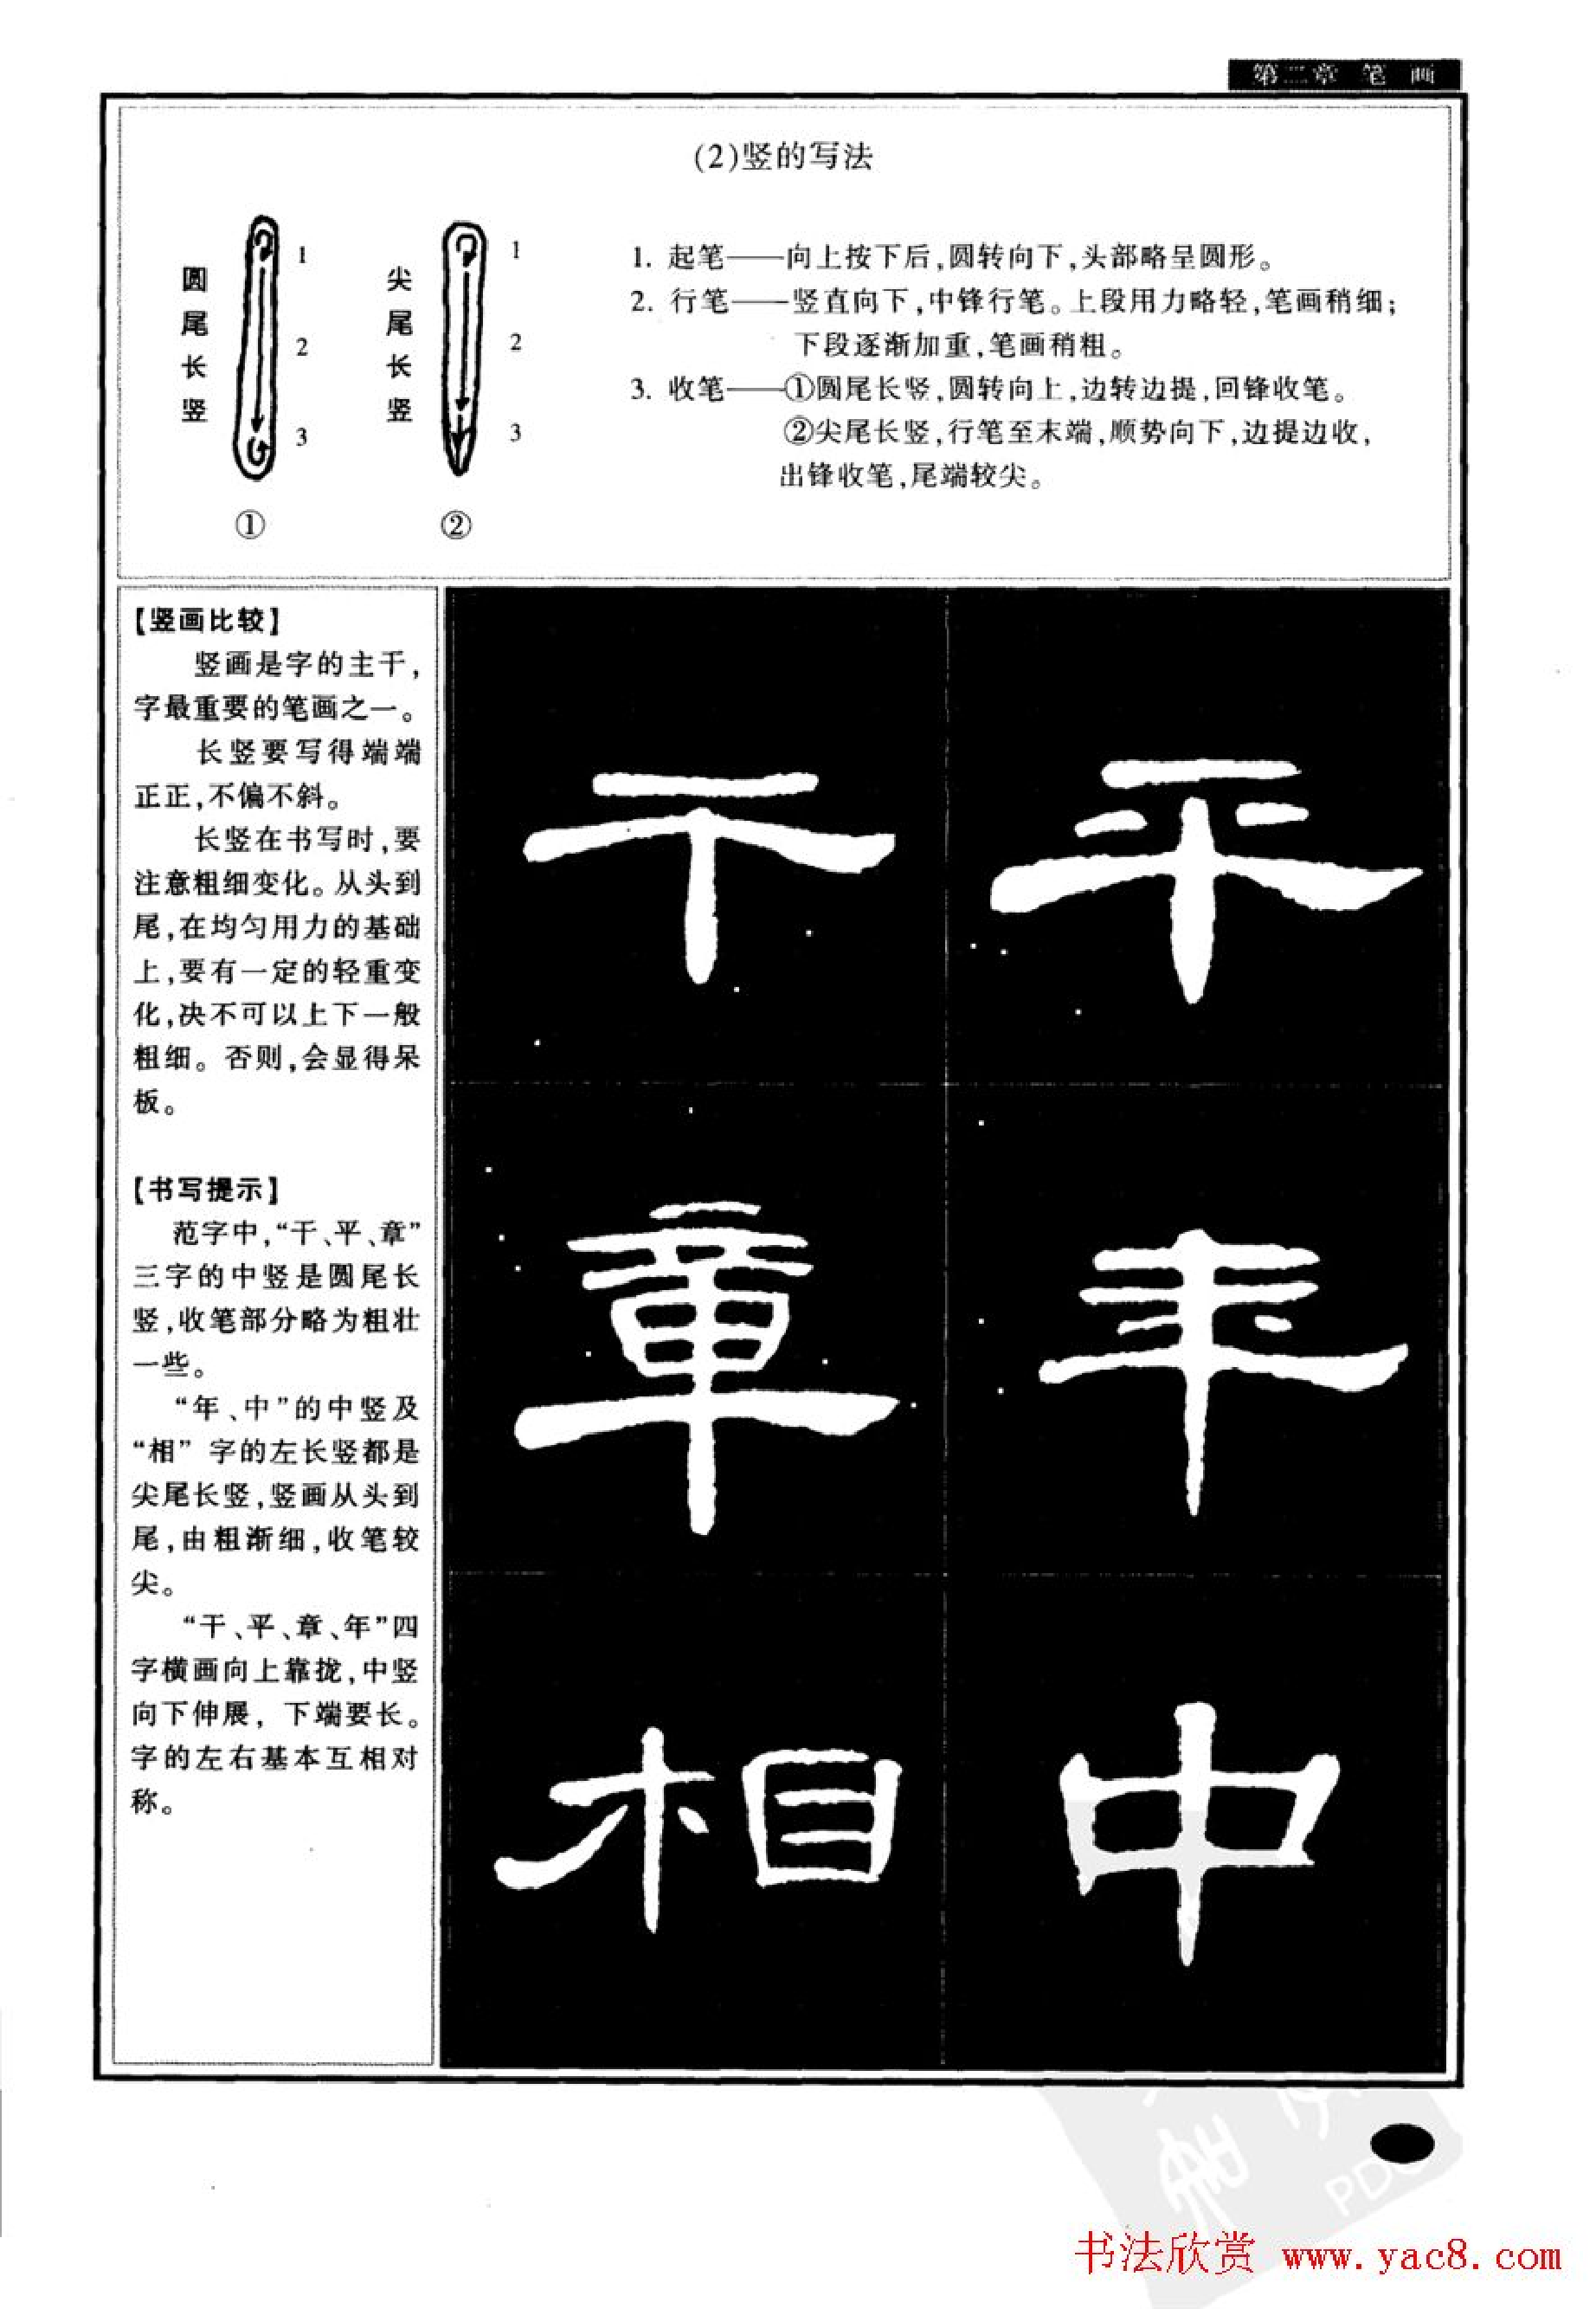 第二章 笔 画
(2)竖的写法
圆尾长竖
1
2
3
①
尖尾长竖
1
2
3
②
1. 起笔——向上按下后,圆转向下,头部略呈圆形。
2. 行笔——竖直向下,中锋行笔。上段用力略轻,笔画稍细;
下段逐渐加重,笔画稍粗。
3. 收笔——①圆尾长竖,圆转向上,边转边提,回锋收笔。
②尖尾长竖,行笔至末端,顺势向下,边提边收,
出锋收笔,尾端较尖。
【竖画比较】
竖画是字的主干,
字最重要的笔画之一。
长竖要写得端端
正正,不偏不斜。
长竖在书写时,要
注意粗细变化。从头到
尾,在均匀用力的基础
上,要有一定的轻重变
化,决不可以上下一般
粗细。否则,会显得呆
板。
【书写提示】
范字中,“干、平、章”
三字的中竖是圆尾长
竖,收笔部分略为粗壮
一些。
“年、中”的中竖及
“相”字的左长竖都是
尖尾长竖,竖画从头到
尾,由粗渐细,收笔较
尖。
“干、平、章、年”四
字横画向上靠拢,中竖
向下伸展,下端要长。
字的左右基本互相对
称。
干 平
章 年
相 中
书法欣赏 www.yac8.com